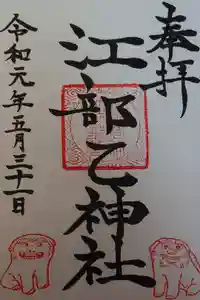 奉拝
江部乙神社
令和元年五月三十一日